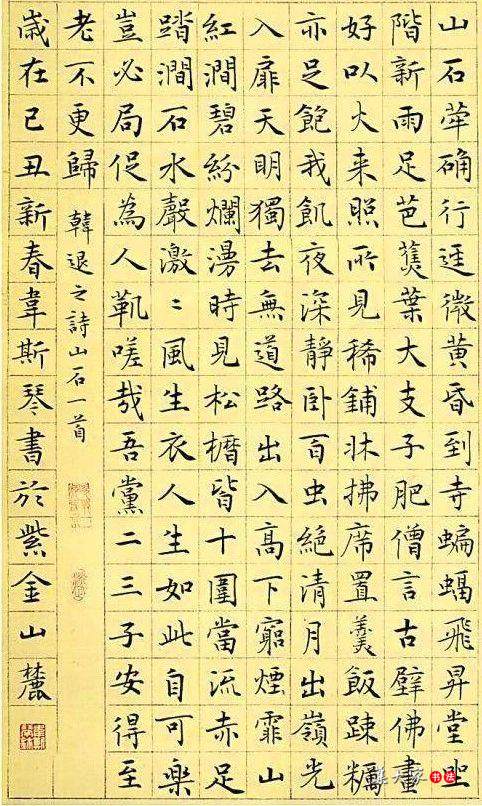 山石犖确行逕微黃昏到寺蝙蝠飛昇堂坐
階新雨足芭蕉葉大支子肥僧言古壁佛畫
好以火来照所見稀鋪牀拂席置羹飯踈糲
亦足飽我飢夜深靜卧百虫絶清月出嶺光
入扉天明獨去無道路出入高下窮煙霏山
紅澗碧紛爛漫時見松櫪皆十圍當流赤足
踏澗石水聲激〻風生衣人生如此自可樂
豈必局促為人鞿嗟哉吾黨二三子安得至
老不更歸
韓退之詩山石一首
歲在己丑新春韋斯琴書於紫金山麓
书法